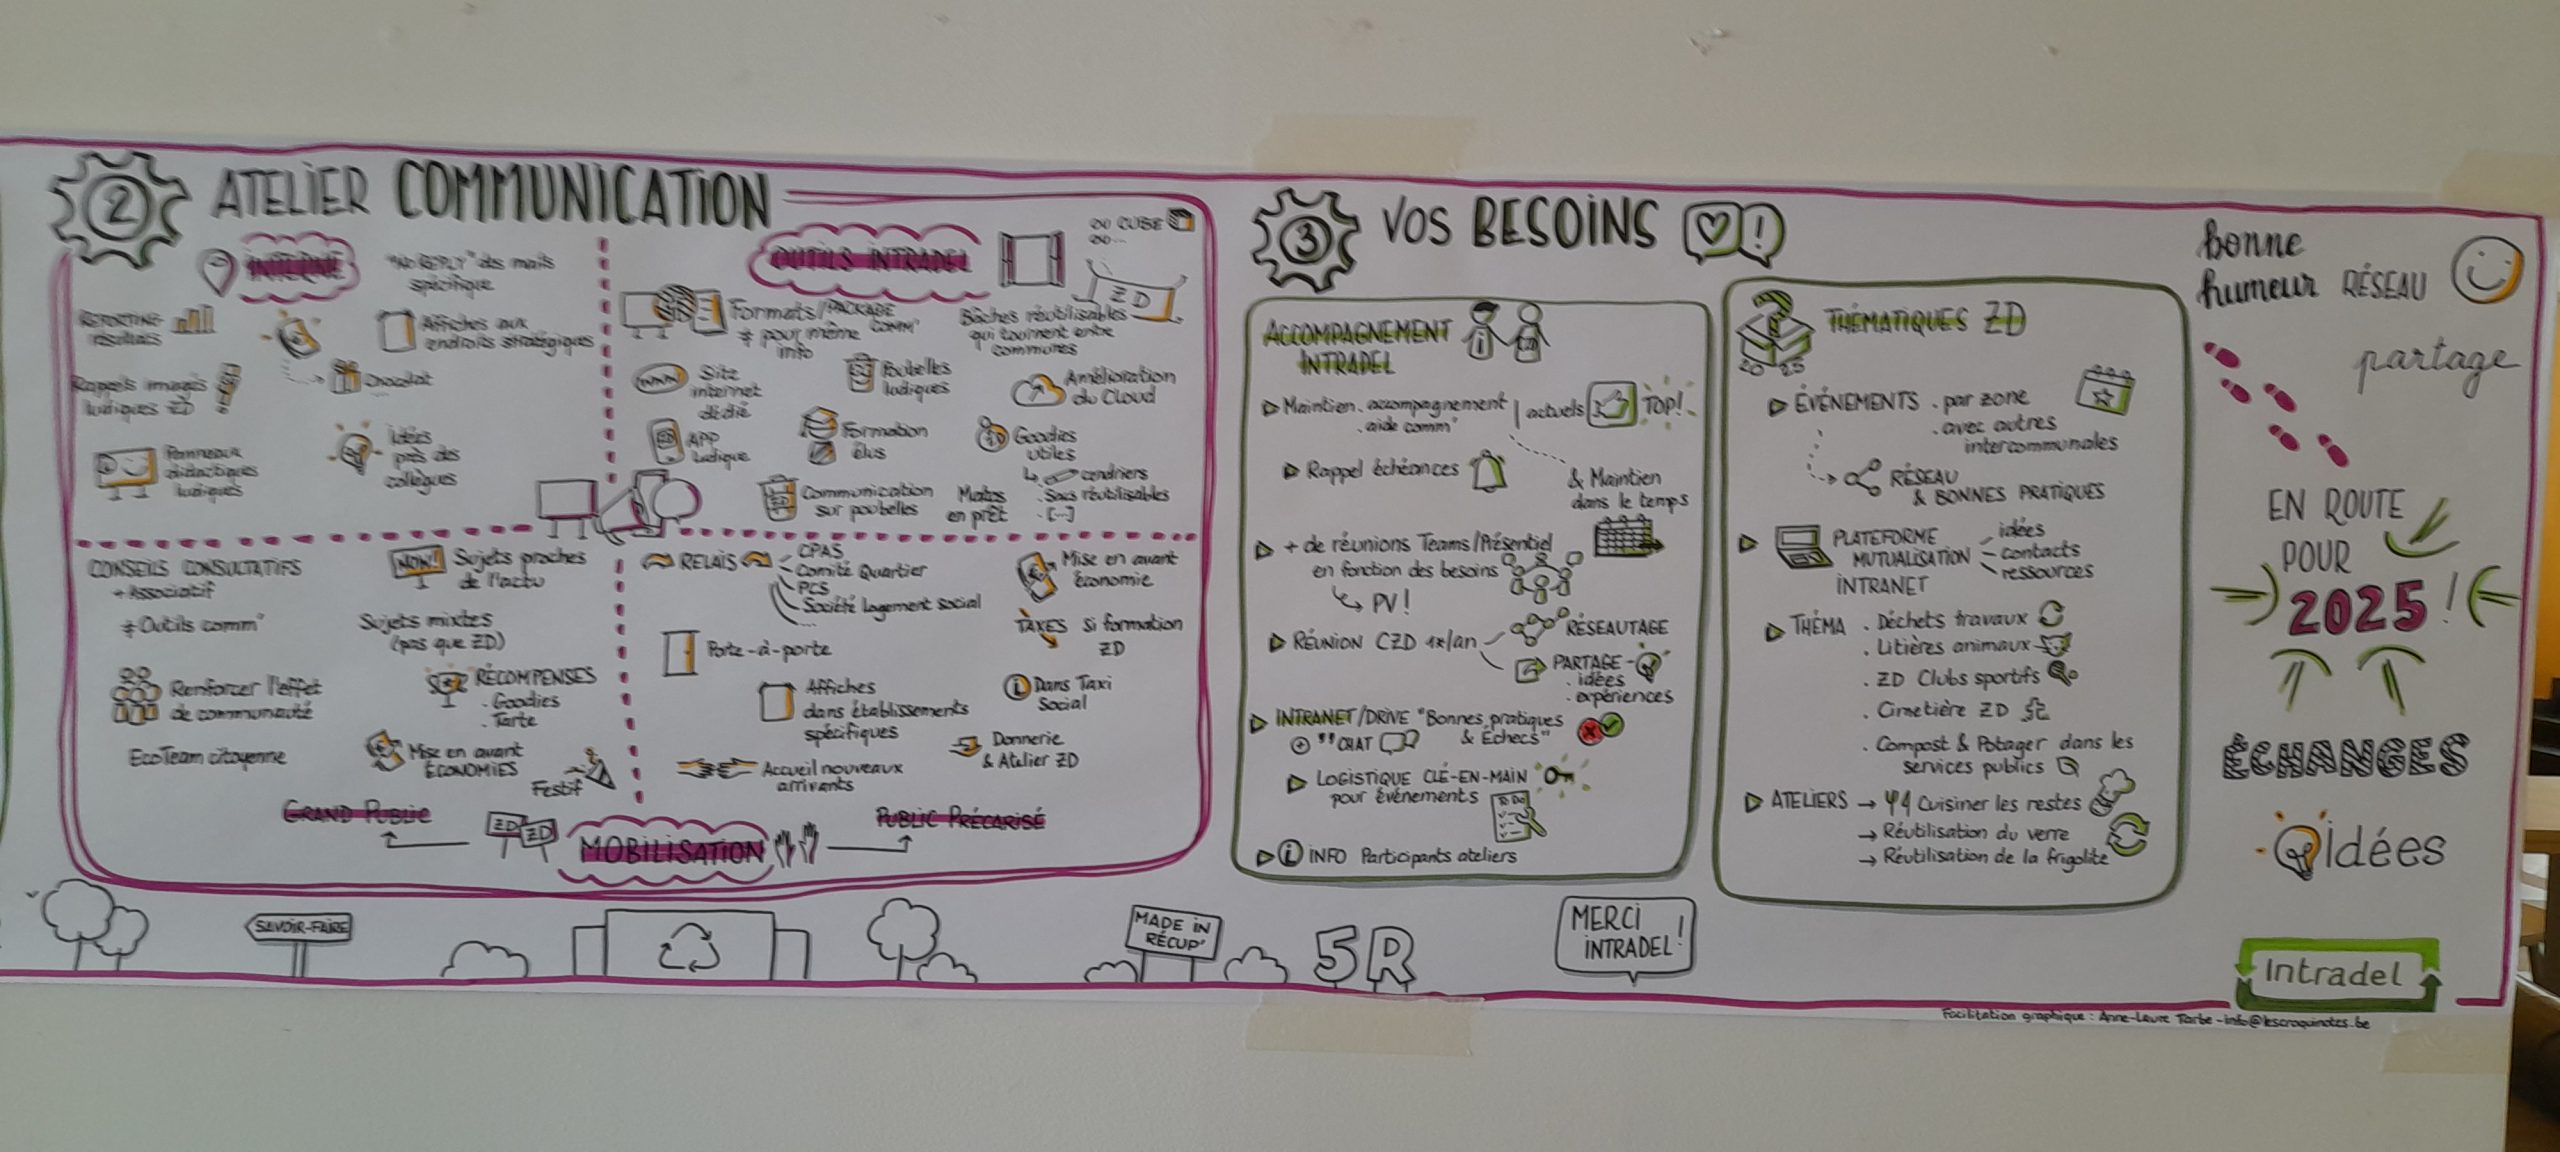 2 ATELIER COMMUNICATION
INTERNE
"NO REPLY" des mails
spécifique
REPORTING
résultats
Affiches aux
endroits stratégiques
Rappels imagés
ludiques ZD
Chocolat
Panneaux
didactiques
ludiques
Idées
près des
collègues
OUTILS INTRADEL
OU CUBE
OU...
ZD
Formats/PACKAGE
COMM'
≠ pour même
info
Bâches réutilisables
qui tournent entre
communes
WWW
Site
internet
dédié
Poubelles
ludiques
Amélioration
du Cloud
APP
Ludique
Formation
élus
Goodies
utiles
cendriers
. Sacs réutilisables
. [...]
Communication
sur poubelles
Matos
en prêt
CONSEILS CONSULTATIFS
+ Associatif
≠ Outils comm'
NOW!
Sujets proches
de l'actu
Sujets mixtes
(pas que ZD)
Renforcer l'effet
de communauté
RÉCOMPENSES
. Goodies
. Tarte
EcoTeam citoyenne
Mise en avant
ÉCONOMIES
Festif
GRAND PUBLIC
RELAIS
CPAS
Comité Quartier
PCS
Société logement social
...
Mise en avant
Économie
TAXES si formation
ZD
Porte-à-porte
Affiches
dans établissements
spécifiques
i Dans Taxi
Social
Accueil nouveaux
arrivants
Donnerie
& Atelier ZD
ZD ZD
MOBILISATION
PUBLIC PRÉCARISÉ
3 VOS BESOINS !
ACCOMPAGNEMENT
INTRADEL
Maintien . accompagnement
. aide comm'
actuels TOP!
Rappel échéances
& Maintien
dans le temps
+ de réunions Teams/Présentiel
en fonction des besoins
PV !
RÉUNION CZD 1x/an
RÉSEAUTAGE
PARTAGE
. idées
. expériences
INTRANET/DRIVE "Bonnes pratiques
& Échecs"
+ "" CHAT
LOGISTIQUE CLÉ-EN-MAIN
pour événements
TO DO
i INFO Participants ateliers
?
2025
THÉMATIQUES ZD
ÉVÉNEMENTS . par zone
. avec autres
intercommunales
RÉSEAU
& BONNES PRATIQUES
PLATEFORME
MUTUALISATION
INTRANET
idées
contacts
ressources
THÉMA . Déchets travaux
. Litières animaux
. ZD Clubs sportifs
. Cimetière ZD
. Compost & Potager dans les
services publics
ATELIERS → Cuisiner les restes
→ Réutilisation du verre
→ Réutilisation de la frigolite
bonne
humeur RÉSEAU
partage
EN ROUTE
POUR
2025 !
ÉCHANGES
idées
SAVOIR-FAIRE
MADE IN
RÉCUP'
5R
MERCI
INTRADEL !
Intradel
Facilitation graphique : Anne-Laure Tarbe - info@lescroquinotes.be